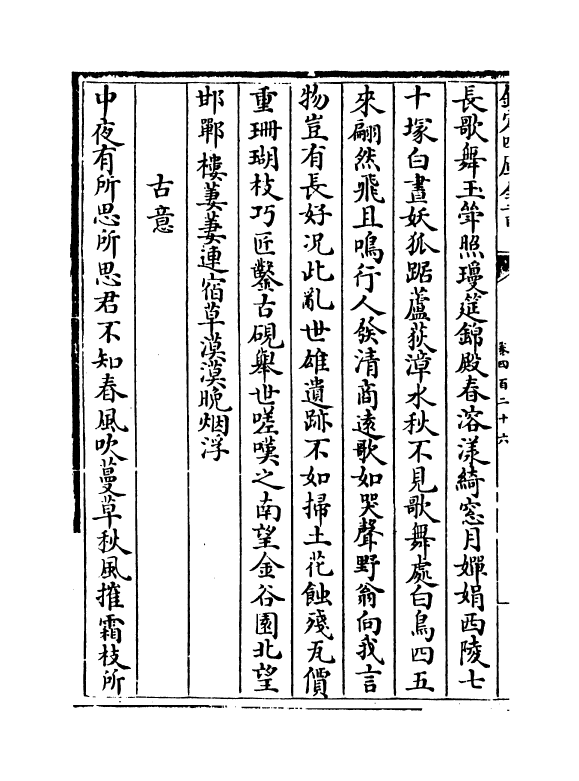 長歌舞玉斝照瓊筵錦殿春溶漾綺窓月嬋娟西陵七
十塚白晝妖狐踞蘆荻漳水秋不見歌舞處白鳥四五
來翩然飛且鳴行人發清商遠歌如哭聲野翁向我言
物豈有長好况此亂世雄遺跡不如掃土花蝕殘瓦價
重珊瑚枝巧匠鑿古硯舉世嗟嘆之南望金谷園北望
邯鄲樓萋萋連宿草漠漠晚烟浮
古意
中夜有所思所思君不知春風吹蔓草秋風摧霜枝所
卷四百二十六